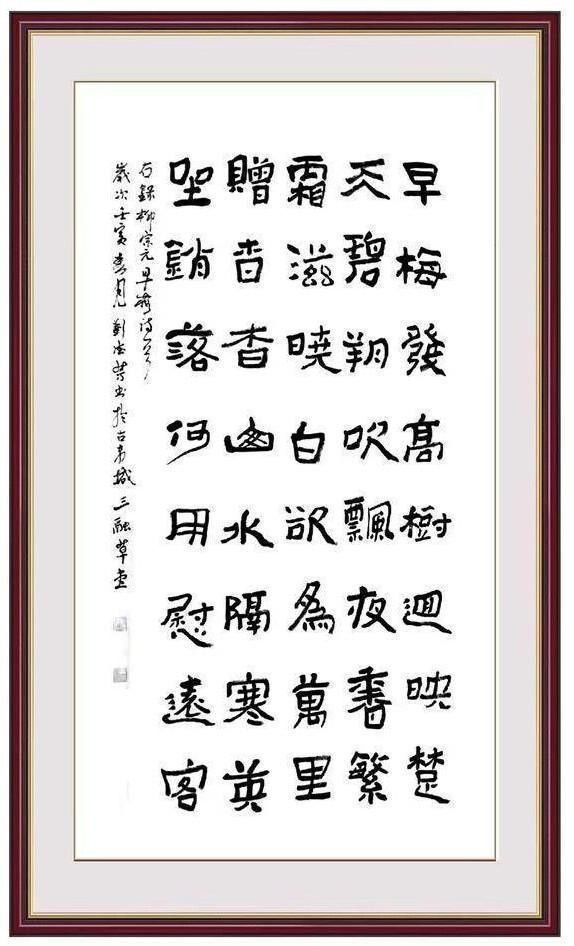 早梅發高樹迴映楚
天碧朔吹飄夜香繁
霜滋暁白欲為萬里
贈杳杳山水隔寒英
坐銷落何用慰遠客
右錄柳宗元早梅詩一首
歲次壬寅春月劉書於古韋城三融草堂